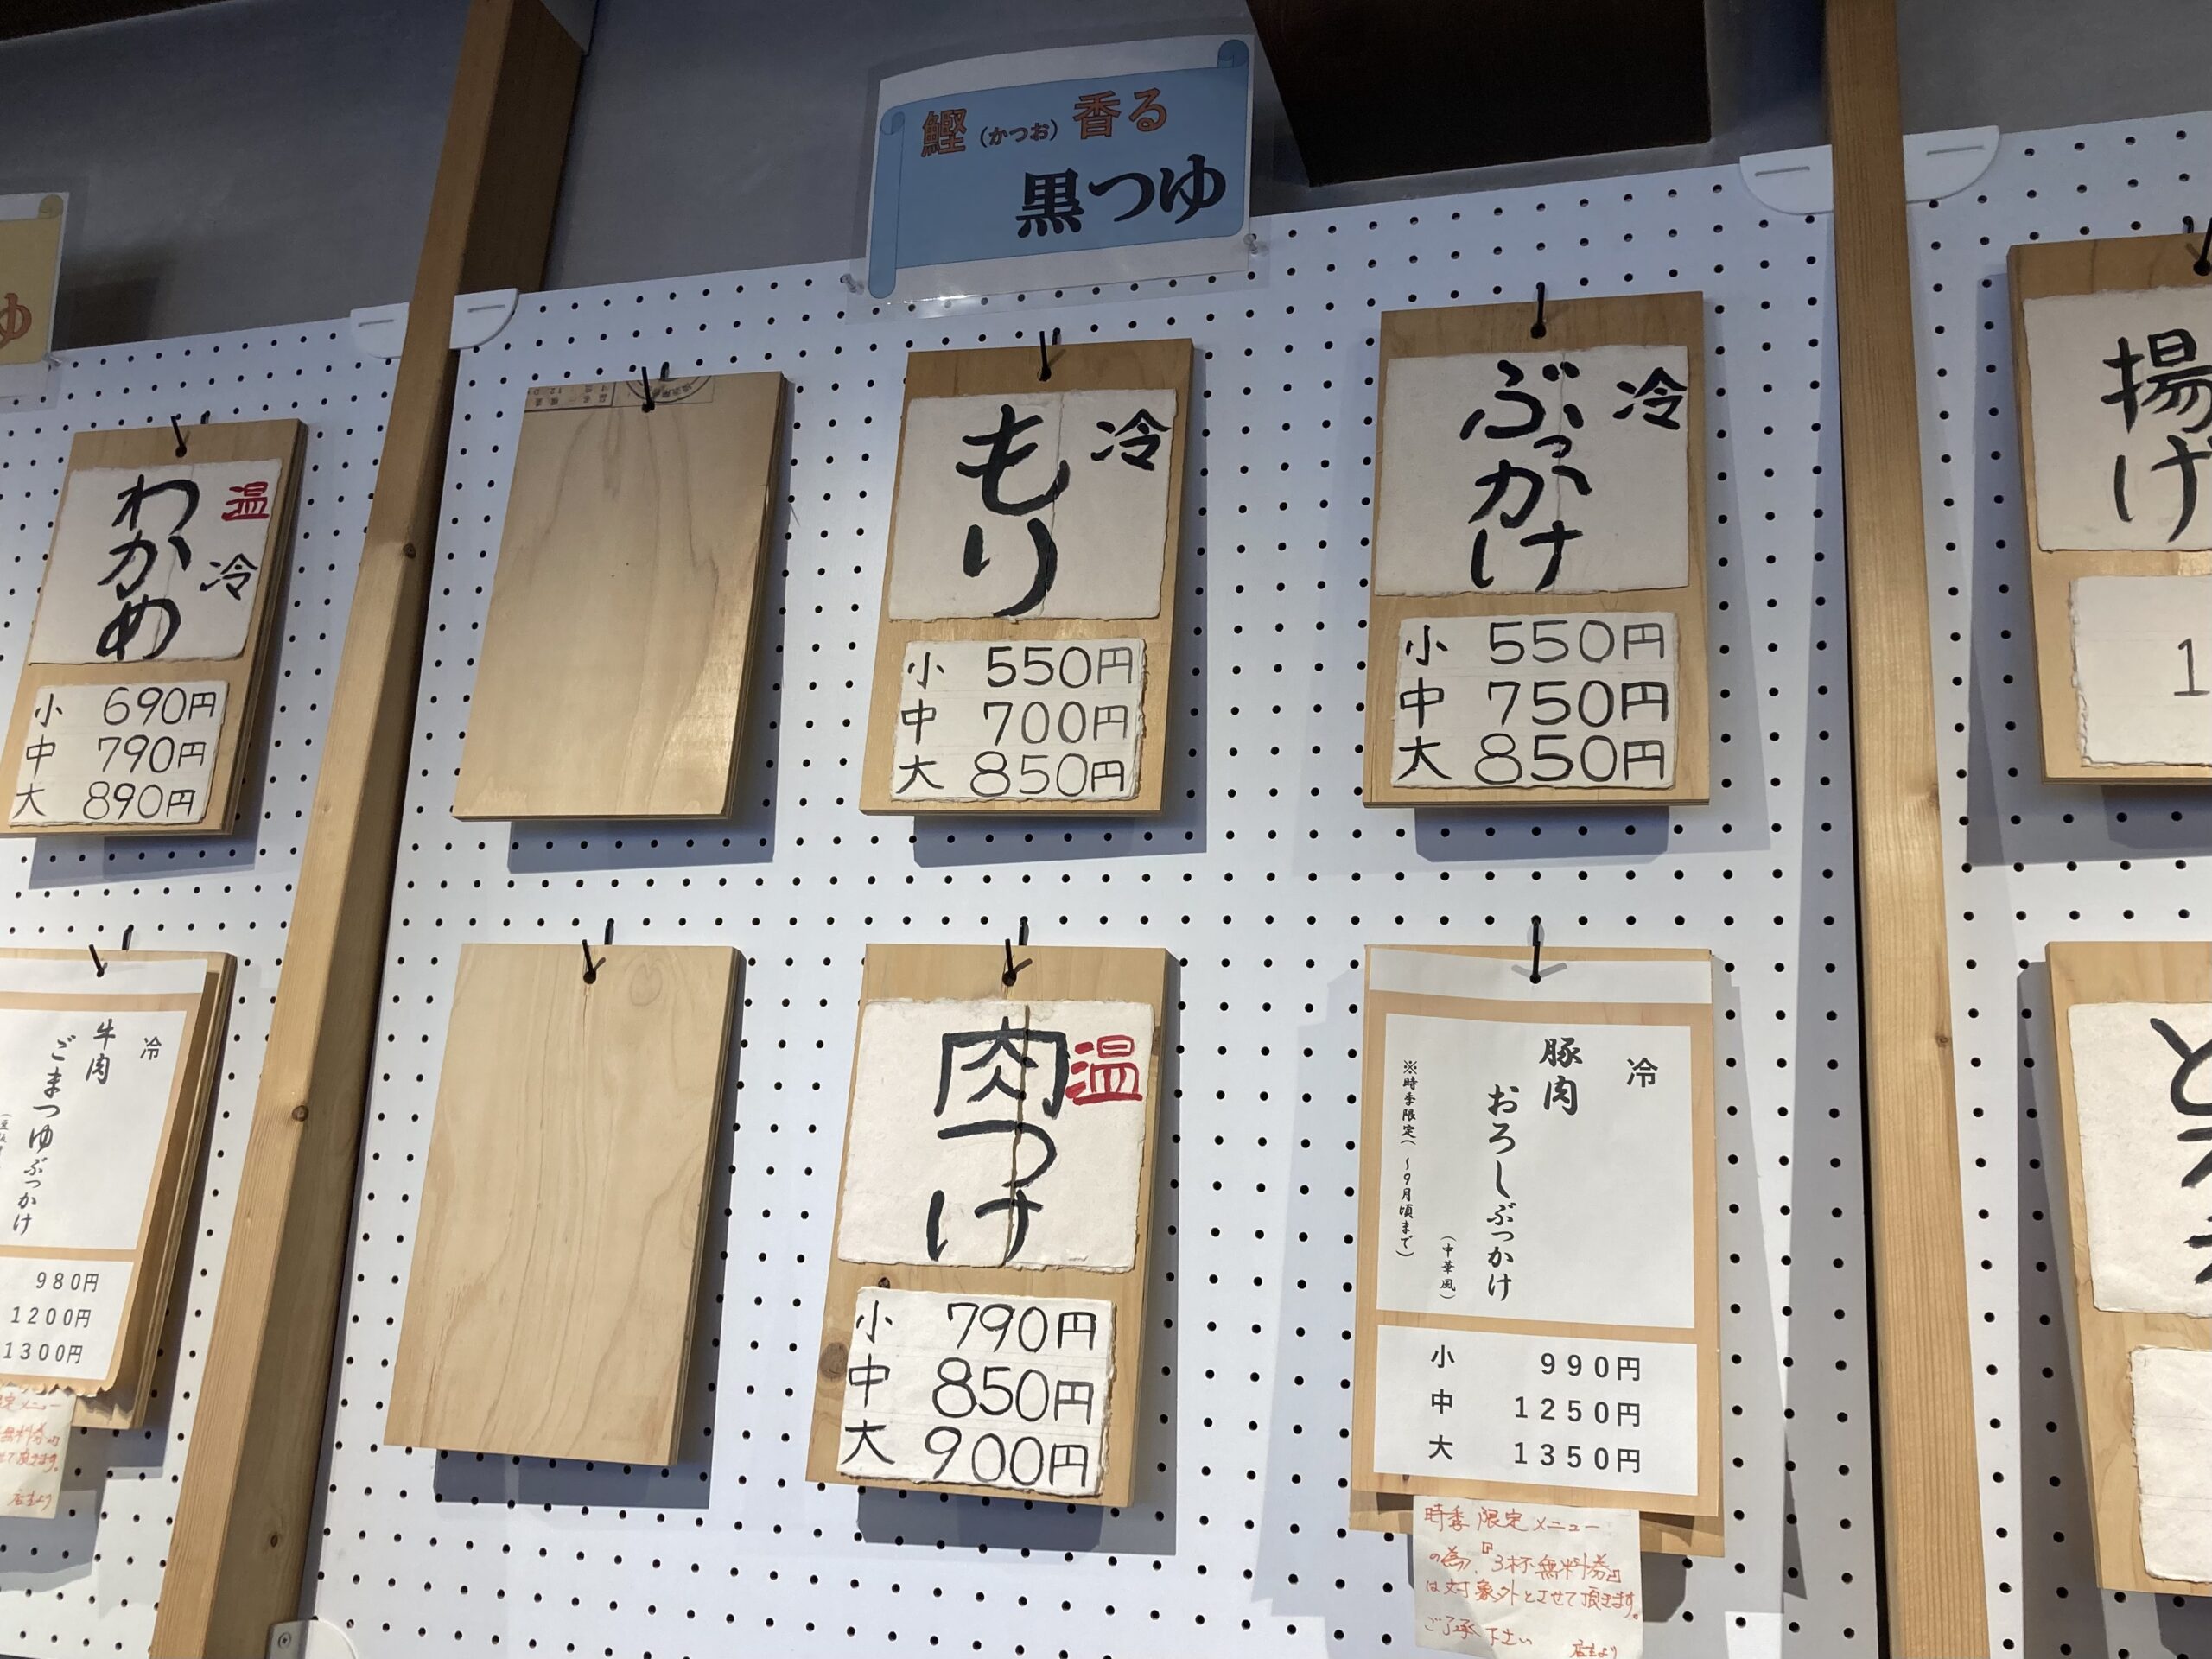 鰹(かつお)香る
黒つゆ
ゆ
温
冷
わかめ
小 690円
中 790円
大 890円
冷
もり
小 550円
中 700円
大 850円
冷
ぶっかけ
小 550円
中 750円
大 850円
揚げ
1
冷
牛肉
ごまつゆぶっかけ
980円
1200円
1300円
温
肉つけ
小 790円
中 850円
大 900円
冷
豚肉
おろしぶっかけ
(中華風)
※時季限定(~9月頃まで)
小 990円
中 1250円
大 1350円
時季限定メニュー
の為、『3杯無料券』
は対象外とさせて頂きます。
ご了承下さい
店主より
定メニュー
無料券』
て頂きます。
店主より
と